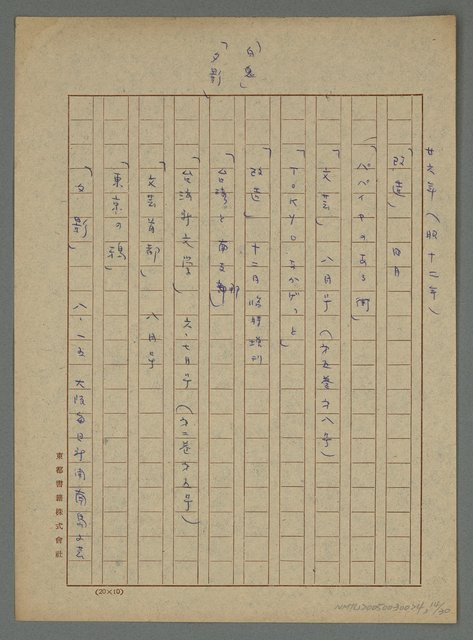 「自裏」
「夕影」
廿六年（昭十二年）
「改造」　四月
「パパイヤのある街」
「文芸」　八月号（第五巻第八号）
「TOKYOあかげっと」
「改造」　十二月臨時増刊
「台湾と南支那」
「台湾新文学」　六・七月号（第二巻第五号）
「文芸首都」　八月号
「東京の鴉」
「夕影」　八・一五　大阪毎日新聞
東都書籍株式會社
(20×10)